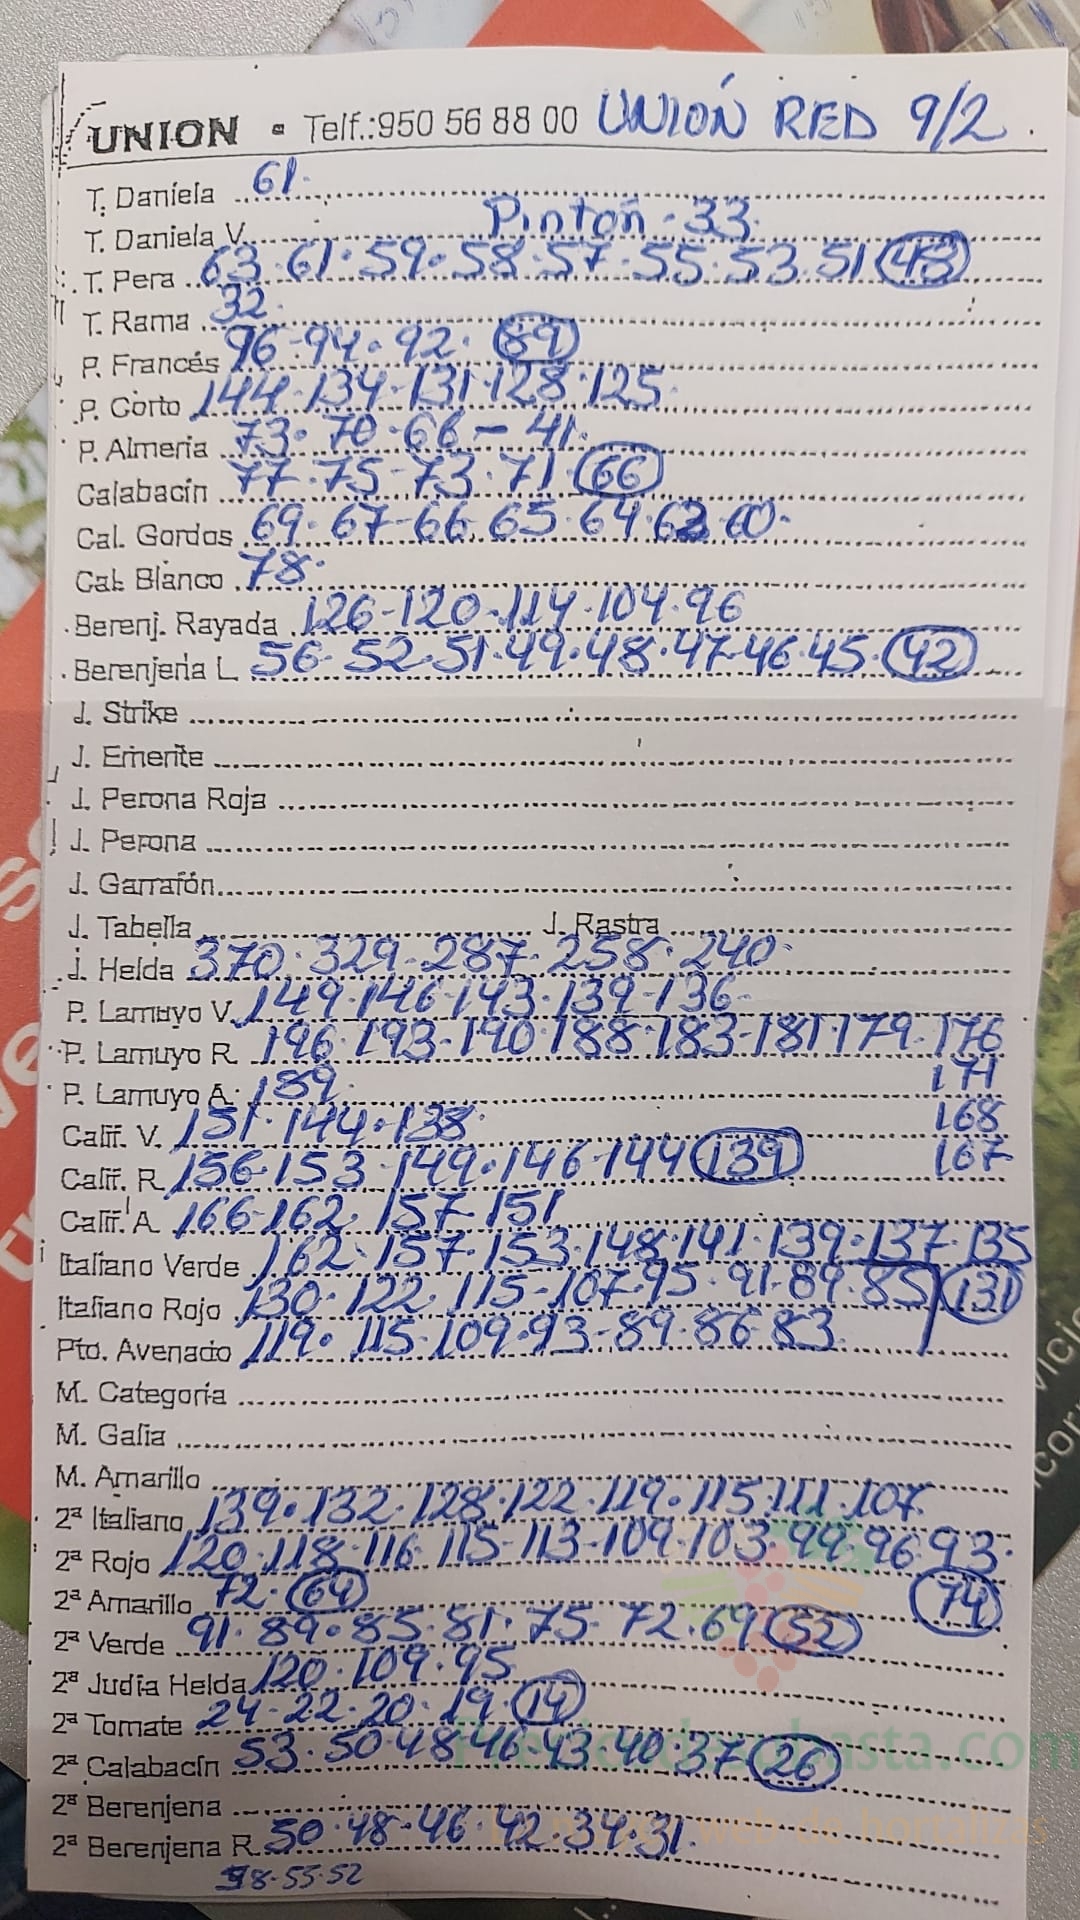 UNION • Telf.:950 56 88 00 UNIÓN RED 9/2.
T. Daniela 61.
T. Daniela V. Pinton. 33.
T. Pera 63. 61. 59. 58. 57. 55. 53. 51 (43)
T. Rama 32.
P. Francés 96-94. 92. (89)
P. Corto 144. 134-131. 128. 125.
P. Almeria 73. 70. 66 - 41.
Calabacín 77. 75-73. 71. (66)
Cal. Gordos 69. 67-66. 65. 64. 62. 60.
Cal. Blanco 78.
Berenj. Rayada 126-120. 114. 104. 96
Berenjena L 56. 52. 51. 49. 48. 47-46. 45. (42)
J. Strike
J. Emerite
J. Perona Roja
J. Perona
J. Garrafón
J. Tabella J. Rastra
J. Helda 370. 329-287. 258. 240.
P. Lamuyo V. 149. 146-143. 139-136-
P. Lamuyo R. 196. 193-190. 188. 183-181. 179. 176
171
P. Lamuyo A. 189.
168
Calif. V. 151. 144. 138.
167
Calif. R. 156-153-149. 146-144 (139)
Calif. A. 166-162. 157-151
Italiano Verde 162. 157. 153. 148. 141. 139. 137. 135
(131)
Italiano Rojo 130. 122. 115-107. 95. 91. 89. 85
Pto. Avenado 119. 115-109. 93-89. 86-83.
M. Categoría
M. Galia
M. Amarillo
2ª Italiano 139. 132. 128. 122. 119. 115. 111. 107.
2ª Rojo 120. 118-116. 115-113-109. 103. 99. 96. 93.
(74)
2ª Amarillo 72. (64)
2ª Verde 91. 89. 85. 81. 75. 72. 69 (52)
2ª Judia Helda 120. 109. 95
2ª Tomate 24-22. 20. 19 (14)
2ª Calabacín 53. 50. 48. 46-43. 40. 37 (26)
2ª Berenjena
2ª Berenjena R. 50. 48-46. 42. 34. 31.
58-55-52
web de hortalizas